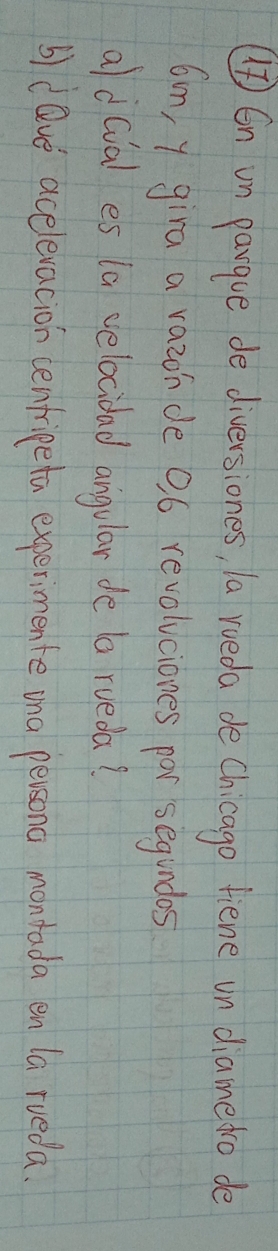 17) En un parque de diversiones, la rueda de Chicago tiene un diametro de
6m, y gira a razón de 0,6 revoluciones por segundos
a) ¿Cuál es la velocidad angular de la rueda?
b) ¿Qué aceleración centripeta experimente una persona montada en la rueda.